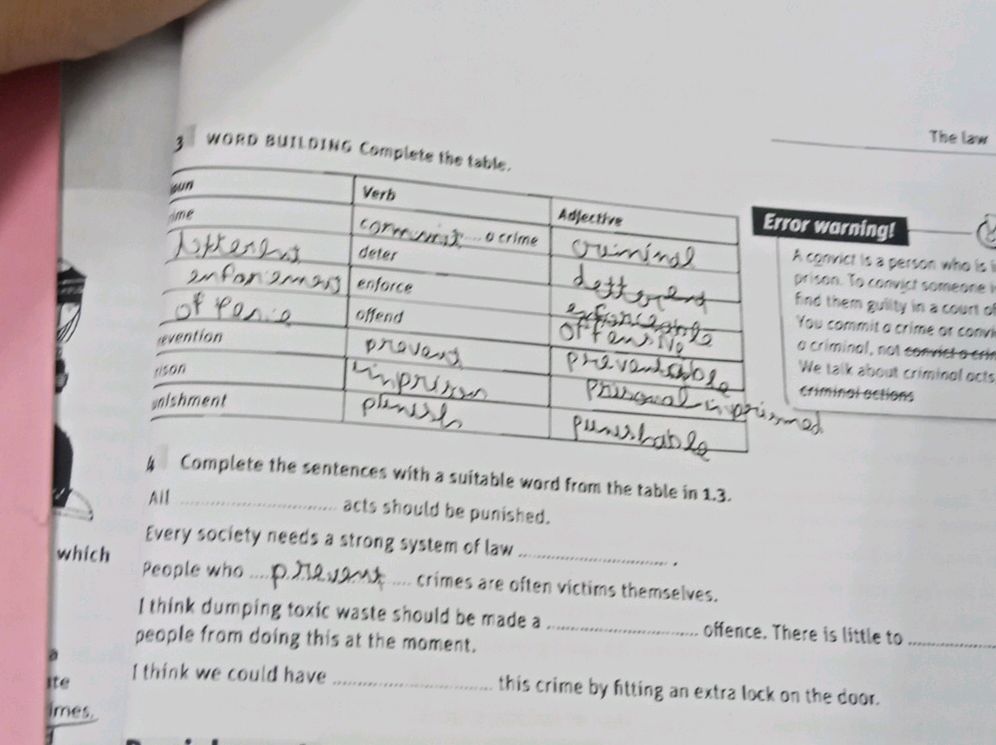 The law
3 WORD BUILDING Complete the table.
oun Verb Adjective
rime commit a crime criminal
detterent deter detterent
enforcement enforce enforceable
offence offend offensive
revention prevent preventable
rison inprison prisonal inprisoned
unishment punish punishable
Error warning!
A convict is a person who is i
prison. To convict someone i
find them guilty in a court of
You commit a crime or convi
a criminal, not convict a crim
We talk about criminal acts
criminal actions
4 Complete the sentences with a suitable word from the table in 1.3.
All ........ acts should be punished.
Every society needs a strong system of law ........ .
which
People who .... prevent .... crimes are often victims themselves.
I think dumping toxic waste should be made a ........ offence. There is little to ........
people from doing this at the moment.
a
I think we could have ........ this crime by fitting an extra lock on the door.
te
imes.